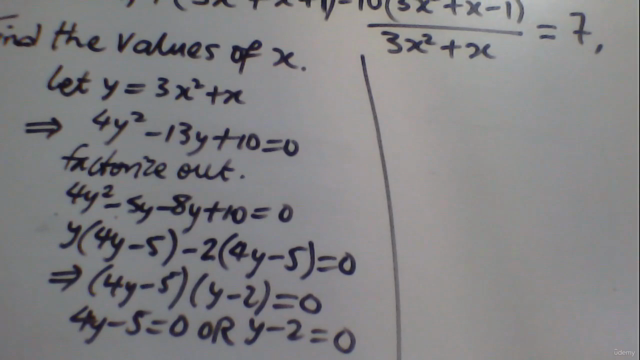 10(3x²+x-1)
3x²+x = 7,
find the values of x.
let y = 3x²+x
⇒ 4y²-13y+10=0
factorize out.
4y²-5y-8y+10=0
y(4y-5)-2(4y-5)=0
⇒ (4y-5)(y-2)=0
4y-5=0 OR y-2=0
Udemy